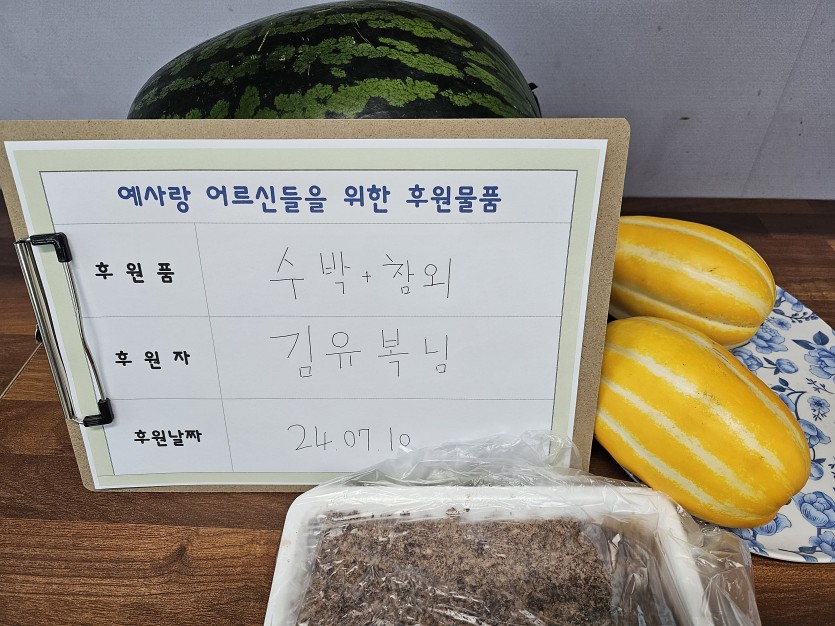 예사랑 어르신들을 위한 후원물품
후원품 수박+참외
후원자 김유복님
후원날짜 24.07.10